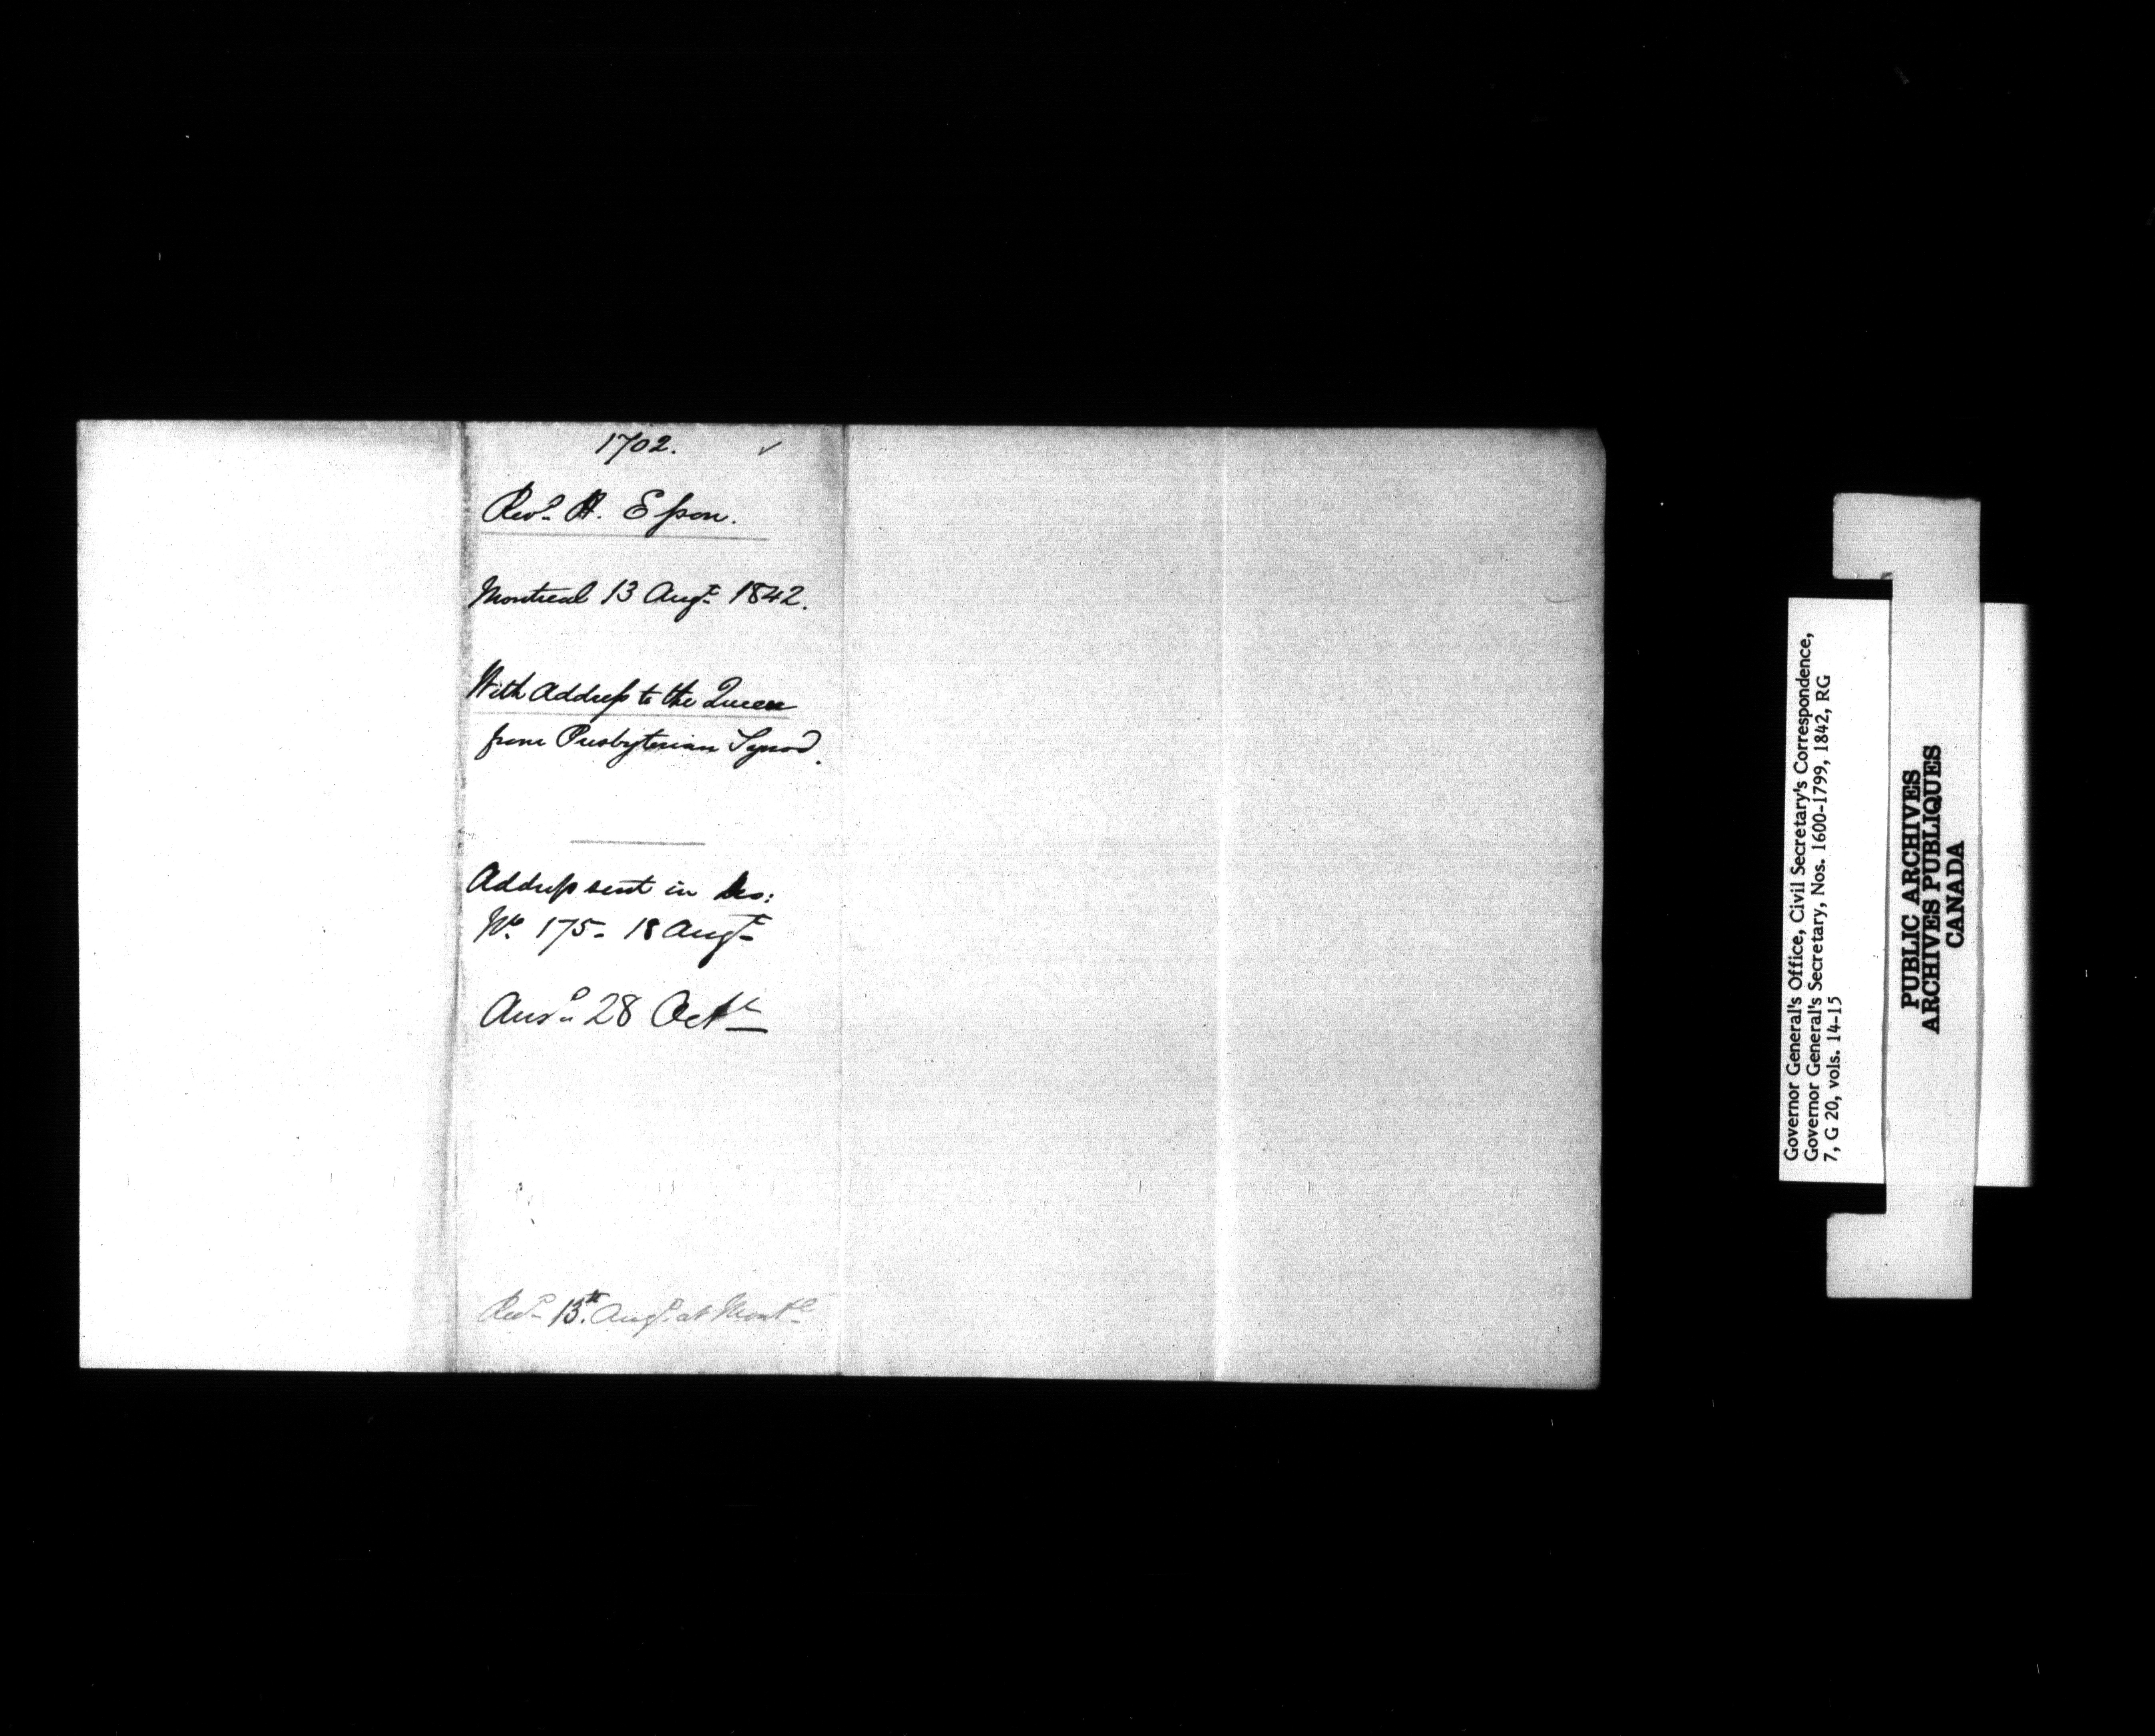 1702. ✓
Revd. H. Esson.
Montreal 13 Augt. 1842.
With Address to the Queen
from Presbyterian Synod.
Address sent in Des:
No. 175 - 18 Augt.
Ansd. 28 Octr.
Recd. 13th. Augt. at Montl.
Governor General's Office, Civil Secretary's Correspondence,
Governor General's Secretary, Nos. 1600-1799, 1842, RG
7, G 20, vols. 14-15
PUBLIC ARCHIVES
ARCHIVES PUBLIQUES
CANADA